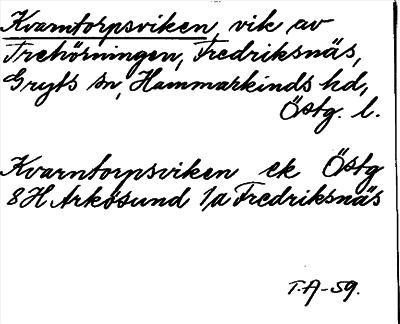 Kvarntorpsviken, vik av
Trehörningen, Fredriksnäs,
Gryts sn, Hammarkinds hd,
Östg. l.
Kvarntorpsviken ek Östg
8H Arkösund 1a Fredriksnäs
T.A-59.